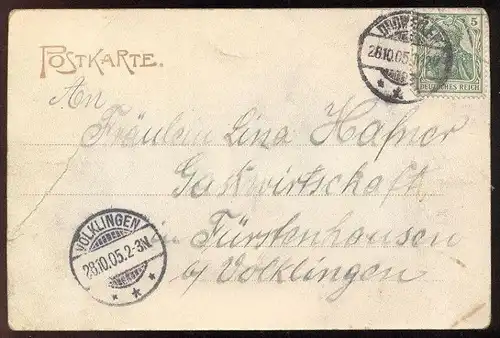 POSTKARTE.
DUDWEILER
28.10.05.
5
DEUTSCHES REICH
An
Fräulein Lina Hafner
Gastwirtschaft
in Fürstenhausen
b/ Völklingen
VÖLKLINGEN
28.10.05.2-3N.